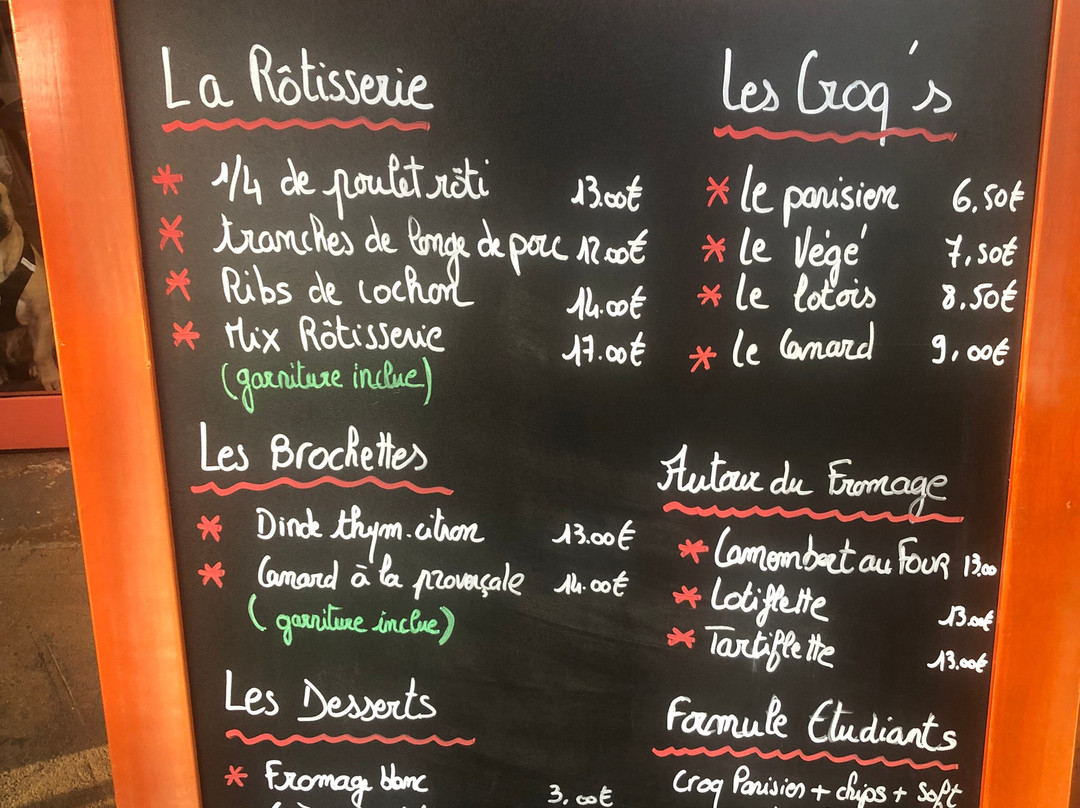 La Rôtisserie
* 1/4 de poulet rôti 13.00€
* tranches de longe de porc 12.00€
* Ribs de cochon 14.00€
* Mix Rôtisserie 17.00€
(garniture inclue)
Les Brochettes
* Dinde thym.citron 13.00€
* Canard à la provençale 14.00€
(garniture inclue)
Les Desserts
* Fromage blanc 3,00€
Les Croq's
* Le parisien 6,50€
* Le Végé 7,50€
* Le lotois 8.50€
* Le Canard 9,00€
Autour du Fromage
* Camembert au Four 13.00
* Lotiflette 13.00€
* Tartiflette 13.00€
Formule Etudiants
Croq Parisien + chips + Soft